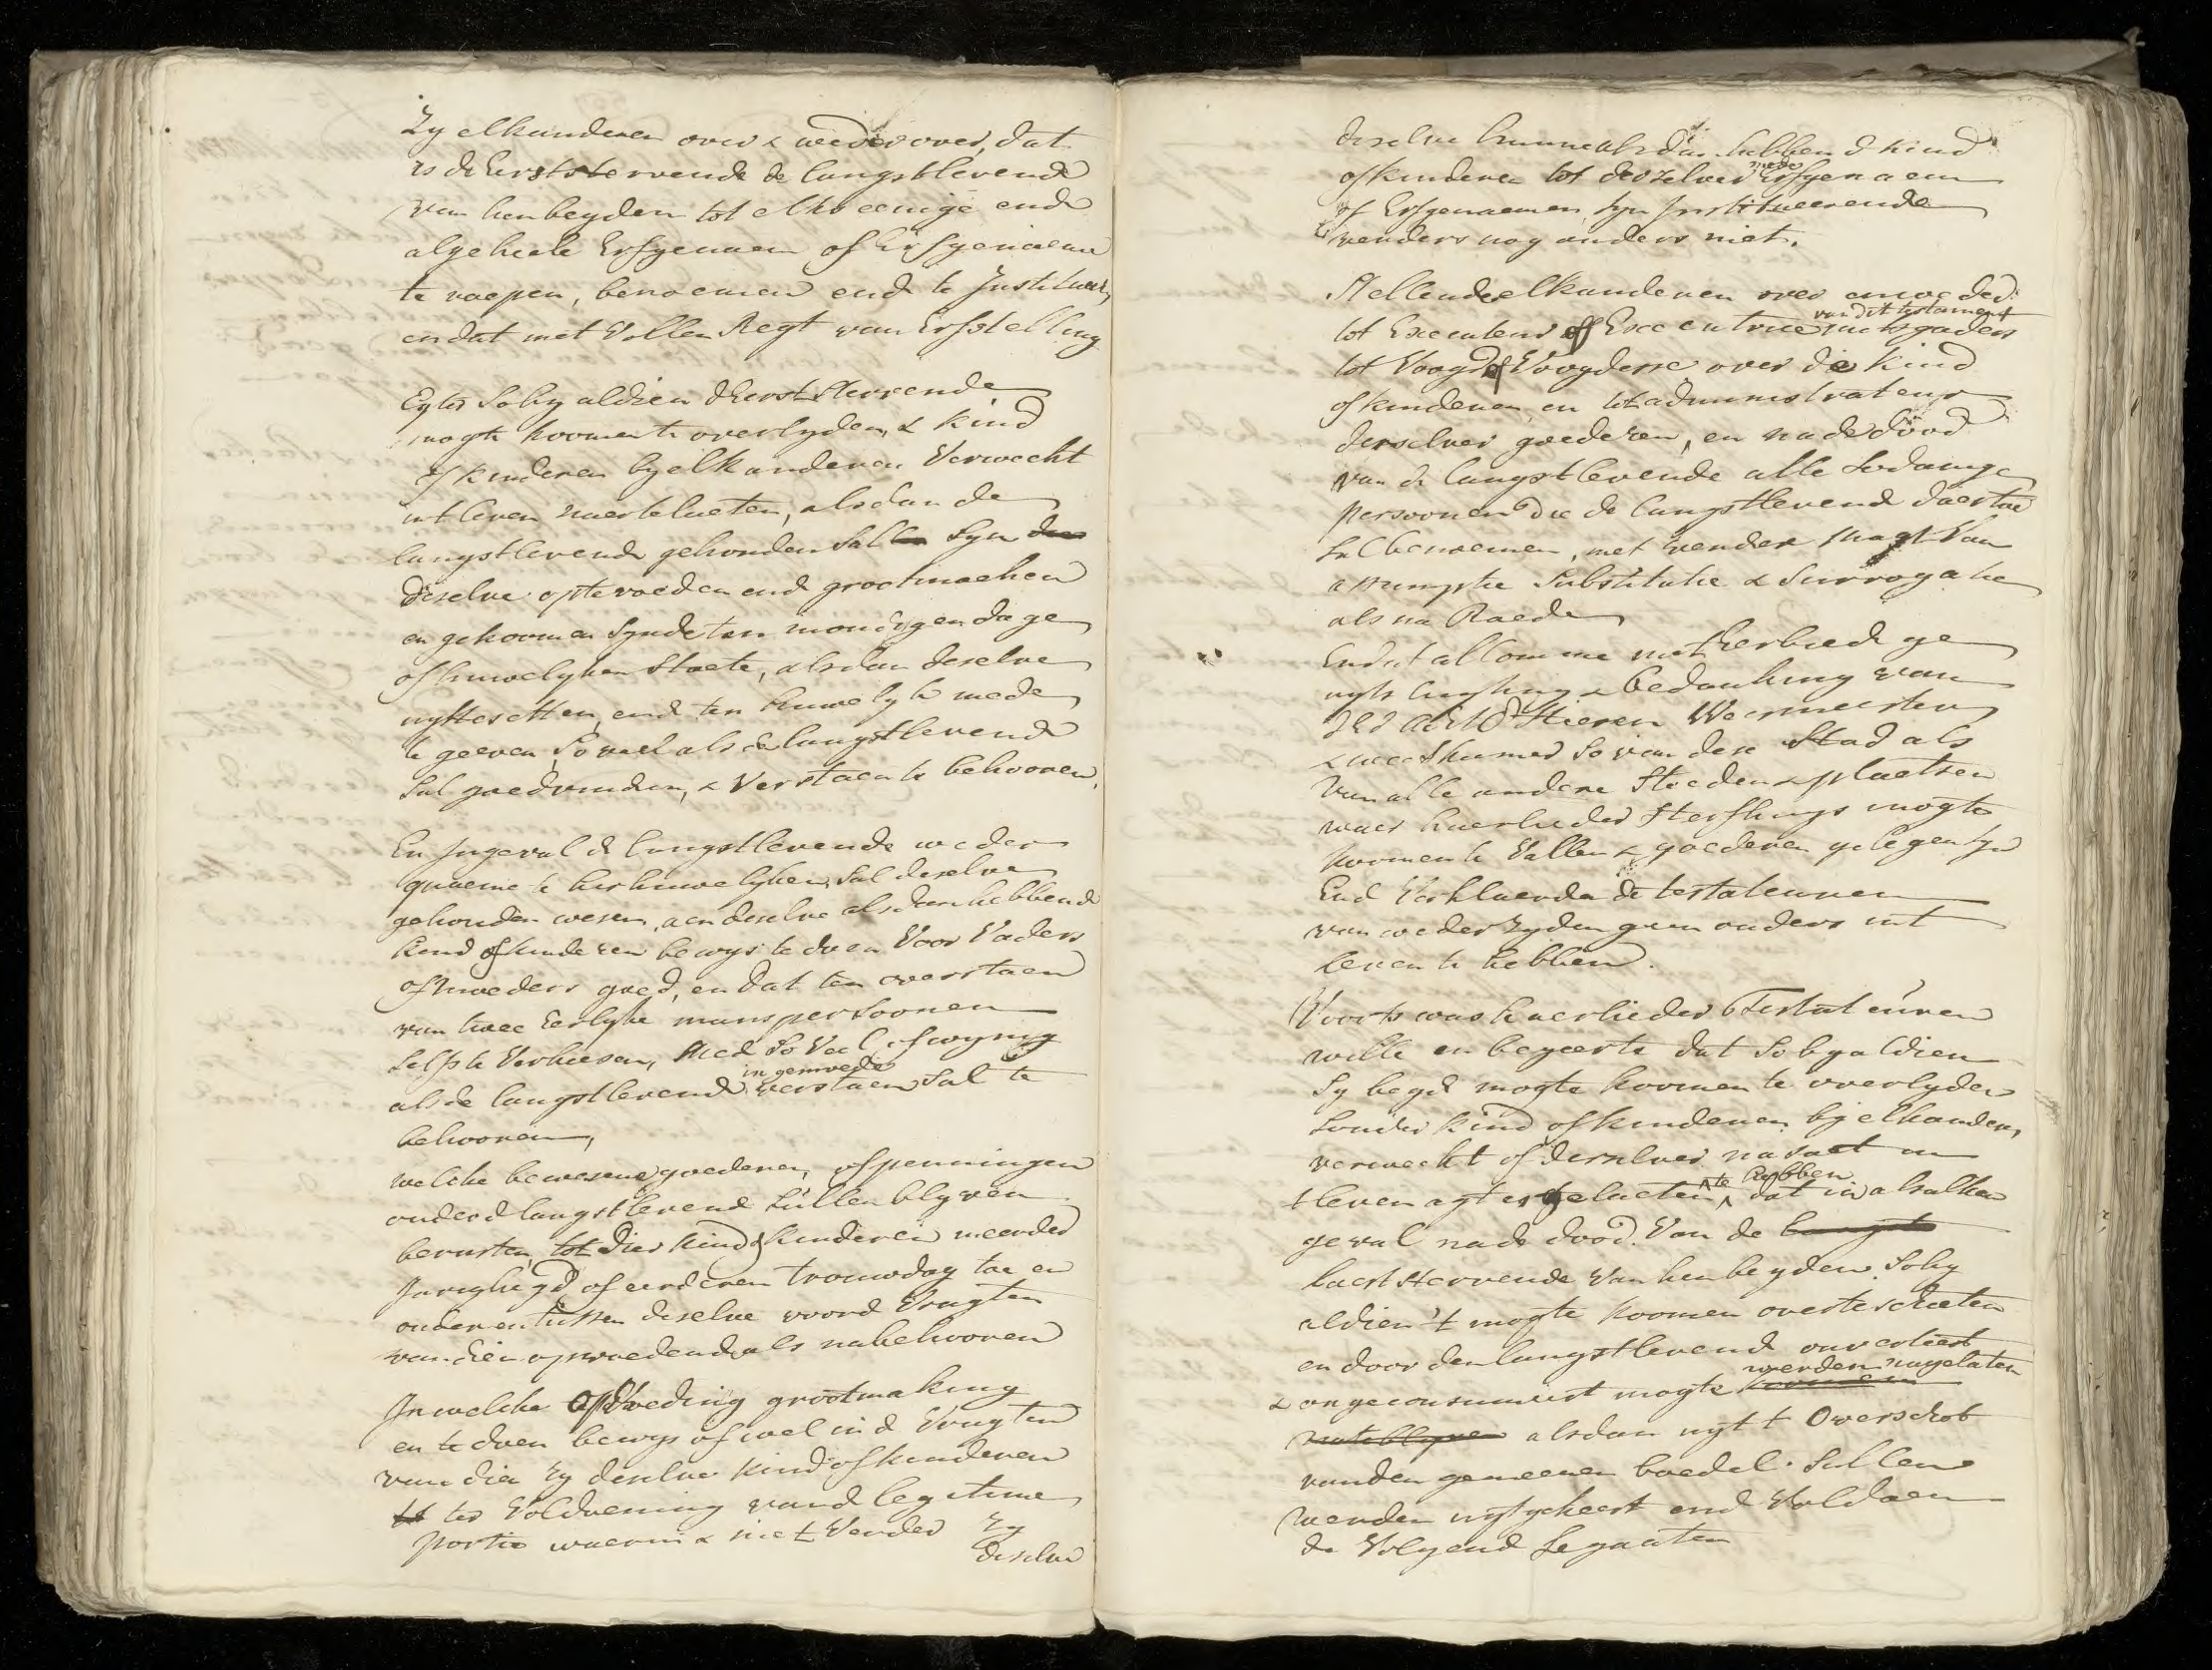 Zy elkanderen over & weder over, dat
is de Eerststervende de langstlevende
van hen beyden tot elks eenige ende
algeheele Erfgenaem of Erfgenaeme
te roepen, benoemen ende te Institueer,
en dat met Vollen Regt van Erfstelling
Egter So by aldien d'Eerst Stervende
mogte koomen te overlyden, & kind
of kinderen by elkanderen Verweckt
int leven naer te laeten, alsdan de
langstlevende gehouden Sal Syn
deselve opte voeden ende groot maeken
en gekoomen Synde ten mondigen dage
of huwelyken Staete, alsdan deselve
uyttesetten, ende ten huwelyk mede
te geeven So veel als de langstlevende
Sal goedvinden, & Verstaen te behooren,
En Ingeval de langstlevende weder
quaeme te herhuwelyken, Sal deselve
gehouden wesen, aen deselve alsdan hebbende
kind of kinderen bewys te doen Voor Vaders
of moeders goed, en dat ten overstaen
van twee Eerlyke manspersoonen
Selfs te Verkiesen, met So Veel of wynig
als de langstlevende in gemoede verstaen Sal te
behooren,
welke bewesene goederen, of penningen
onder d'langstlevende Sullen blyven
berusten, tot dier kind of kinderen meerder
Jarigheyd, of eerderen trouwdag toe en
onder en tussen deselve voor d' Vrugten
van dien opvoedende als na behooren
In welke Opvoeding grootmaking
en te doen bewys of wel in d' Vrugten
van dien zy deselve kind of kinderen
ter Voldoening van d' legitime
portie waerin & niet Verder Zy
deselve
deselve hunne alsdan hebbend kind
of kinderen tot derselver mede Erfgenaem
of Erfgenaemen Syn Institueerende
verders nog anders niet.
Stellende elkanderen over en weder
tot Executeur of Executrice van dit testament mitsgaders
tot Voogd of Voogdesse over die kind
of kinderen, en tot administrateur
derselver goederen, en na de dood
van de langstlevende alle Sodanige
persoonen die de langstlevend daertoe
Sal benoemen, met verder Magt Van
assumptie Substitutie & Surrogatie
als na Raede
Ende dit alomme met Eerbiedige
uytsluyting & bedanking van
Heeren Weesmeesteren
& weeskamer So van dese Stad als
Van alle andere Steeden & plaetsen
waer haerlieder Sterfhuys mogte
koomen te Vallen & goederen gelegen syn
End Verklaerden de testateuren
van weder zyden geen ouders int
leven te hebben.
Voorts was haerlieder Testateuren
wille en begeerte dat So by aldien
Sy beyde mogte koomen te overlyden
Sonder kind of kinderen by elkanderen
verweckt of derselver nasaet in
t leven agtergelaeten te hebben dat in alsulken
geval na de dood Van de
laest Stervende Van hen beyden So by
aldien 't mogte koomen overteschieten
en door den langstlevend onverteert
& ongeconsumeert mogte werden nagelaten
alsdan uyt t Overschot
van den gemeenen boedel Sullen
Werden uytgekeert end Voldaen
de Volgend Legaaten